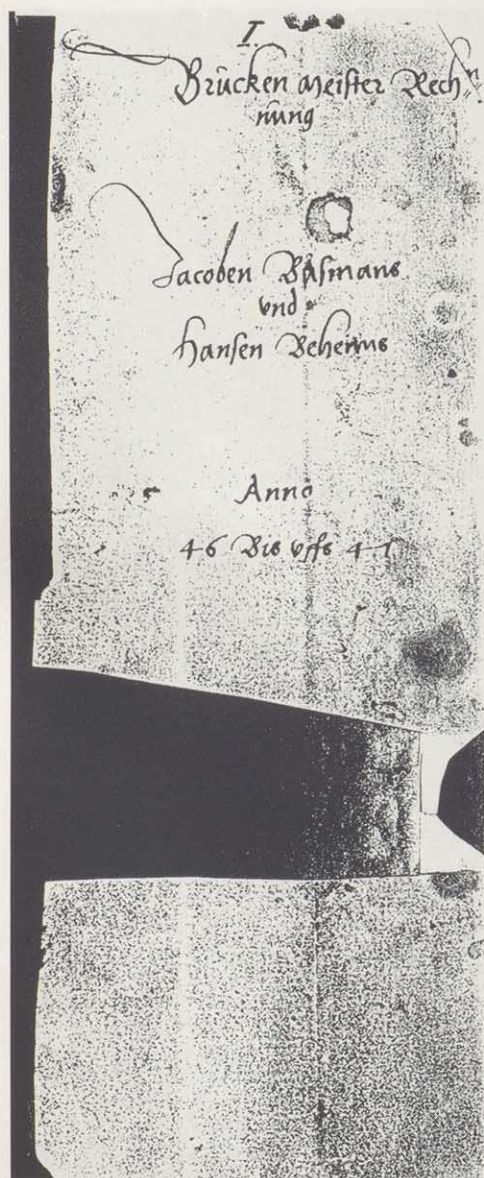 I.
Brücken meister Rech
nung
Jacoben Basmans
vnd
Hansen Behems
Anno
46 Bis vffs 47